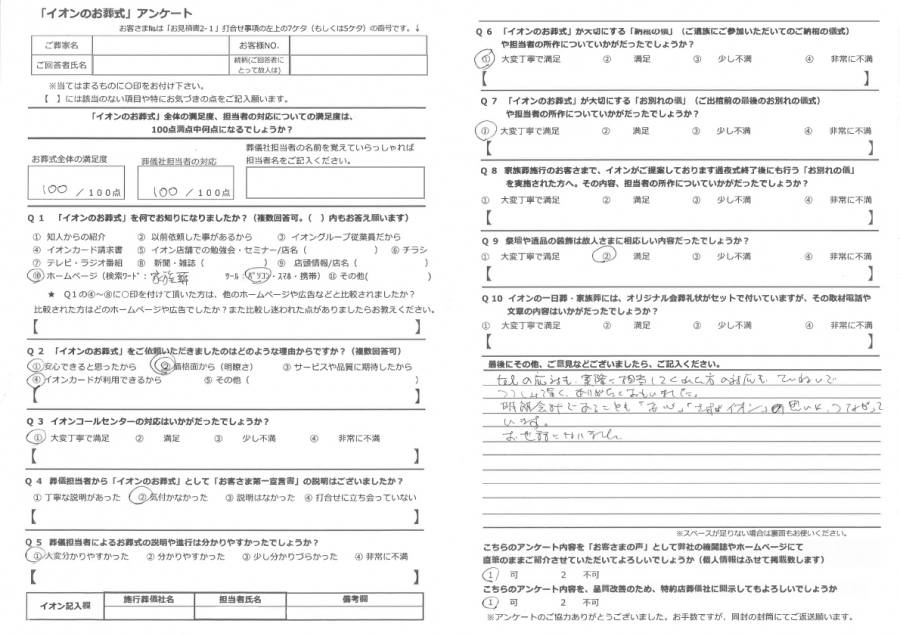 「イオンのお葬式」アンケート
お客さま№は「お見積書2-1」打合せ事項の左上の7ケタ（もしくは5ケタ）の番号です。↓
ご葬家名 お客様NO.
ご回答者氏名 続柄(ご回答者にとって故人は)
※当てはまるものに〇印をお付け下さい。
【 】には該当のない項目や特にお気づきの点をご記入願います。
「イオンのお葬式」全体の満足度、担当者の対応についての満足度は、
100点満点中何点になるでしょうか？
葬儀社担当者の名前を覚えていらっしゃれば
担当者名をご記入ください。
お葬式全体の満足度 葬儀社担当者の対応
100 / 100点 100 / 100点
Q１ 「イオンのお葬式」を何でお知りになりましたか？（複数回答可。（ ）内もお答え願います）
① 知人からの紹介 ② 以前依頼した事があるから ③ イオングループ従業員だから
④ イオンカード請求書 ⑤ イオン店舗での勉強会・セミナー/店名（ ） ⑥ チラシ
⑦ テレビ・ラジオ番組 ⑧ 新聞・雑誌（ ） ⑨ 店頭情報/店名（ ）
⑩ ホームページ（検索ﾜｰﾄﾞ：家族葬 ﾂｰﾙ：パソコン・ｽﾏﾎ・携帯）⑪ その他( )
★ Q１の④～⑧に〇印を付けて頂いた方は、他のホームページや広告などと比較されましたか？
比較された方はどのホームページや広告でしたか？また比較し迷われた点がありましたらお教えください。
【 】
Q２ 「イオンのお葬式」をご依頼いただきましたのはどのような理由からですか？（複数回答可）
①安心できると思ったから ②価格面から（明瞭さ） ③ サービスや品質に期待したから
④イオンカードが利用できるから ⑤ その他（ ）
【 】
Q３ イオンコールセンターの対応はいかがだったでしょうか？
① 大変丁寧で満足 ② 満足 ③ 少し不満 ④ 非常に不満
【 】
Q４ 葬儀担当者から「イオンのお葬式」として「お客さま第一宣言書」の説明はございましたか？
① 丁寧な説明があった ②気付かなかった ③ 説明はなかった ④ 打合せに立ち会っていない
【 】
Q５ 葬儀担当者によるお葬式の説明や進行は分かりやすかったでしょうか？
①大変分かりやすかった ② 分かりやすかった ③ 少し分かりづらかった ④ 非常に不満
【 】
イオン記入欄 施行葬儀社名 担当者氏名 備考欄
Q６ 「イオンのお葬式」が大切にする「納棺の儀」（ご遺族にご参加いただいてのご納棺の儀式）
や担当者の所作についていかがだったでしょうか？
① 大変丁寧で満足 ② 満足 ③ 少し不満 ④ 非常に不満
【 】
Q７ 「イオンのお葬式」が大切にする「お別れの儀」（ご出棺前の最後のお別れの儀式）
や担当者の所作についていかがだったでしょうか？
① 大変丁寧で満足 ② 満足 ③ 少し不満 ④ 非常に不満
【 】
Q８ 家族葬施行のお客さまで、イオンがご提案しております通夜式終了後にも行う「お別れの儀」
を実施された方へ。その内容、担当者の所作についていかがだったでしょうか？
① 大変丁寧で満足 ② 満足 ③ 少し不満 ④ 非常に不満
【 】
Q９ 祭壇や遺品の装飾は故人さまに相応しい内容だったでしょうか？
① 大変丁寧で満足 ② 満足 ③ 少し不満 ④ 非常に不満
【 】
Q10 イオンの一日葬・家族葬には、オリジナル会葬礼状がセットで付いていますが、その取材電話や
文章の内容はいかがだったでしょうか？
① 大変丁寧で満足 ② 満足 ③ 少し不満 ④ 非常に不満
【 】
最後にその他、ご意見などございましたら、ご記入ください。
telの応対も、実際に担当してくれた方の対応も、ていねいで
ありがたくおもいました。
明朗会計であることも「安心」「さすがイオン」の思いに、つながって
います。
お世話になりました。
※スペースが足りない場合は裏面もお使いください。
こちらのアンケート内容を「お客さまの声」として弊社の機関誌やホームページにて
直筆のままご紹介させていただいてよろしいでしょうか（個人情報はふせて掲載致します）
1 可 2 不可
こちらのアンケート内容を、品質改善のため、特約店葬儀社に開示してもよろしいでしょうか
1 可 2 不可
※アンケートのご協力ありがとうございました。お手数ですが、同封の封筒にてご返送願います。